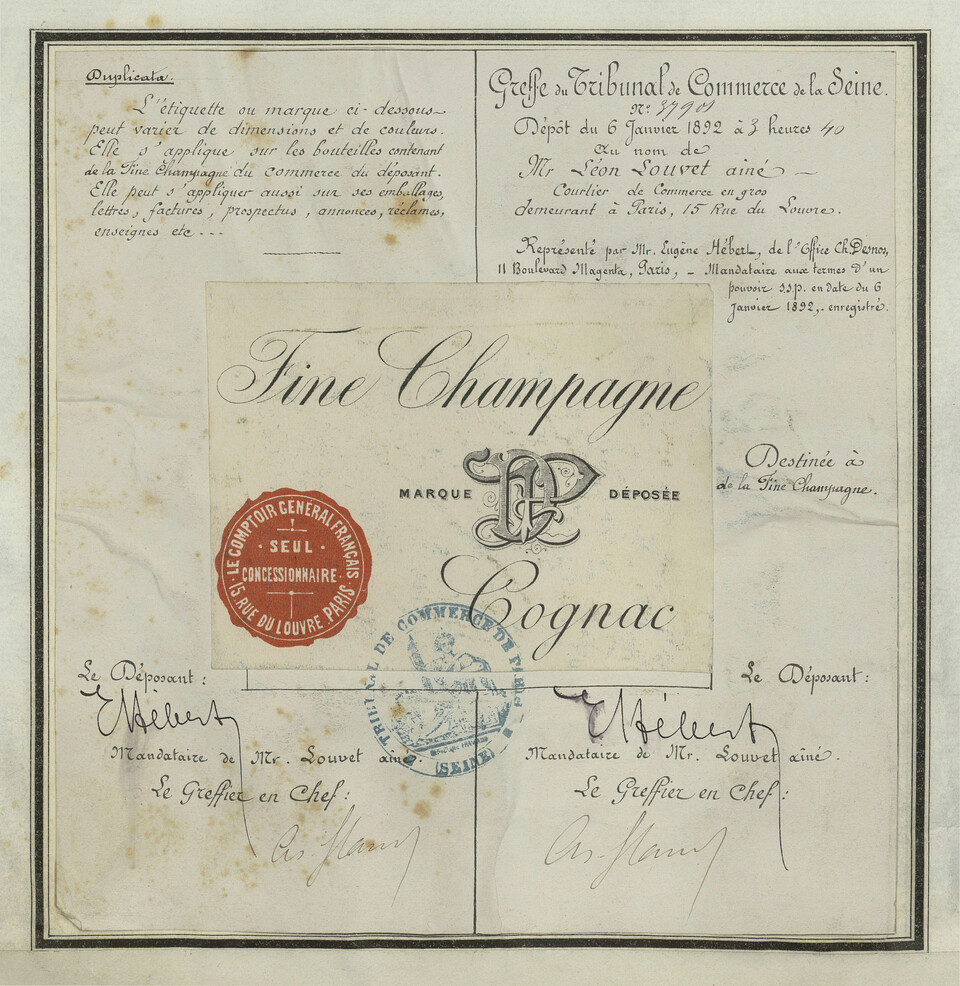 Duplicata.
L'étiquette ou marque ci-dessous
peut varier de dimensions et de couleurs.
Elle s'applique sur les bouteilles contenant
de la Fine Champagne du commerce du déposant.
Elle peut s'appliquer aussi sur ses emballages,
lettres, factures, prospectus, annonces, réclames,
enseignes etc ---
Greffe du Tribunal de Commerce de la Seine.
N°: 37901
Dépôt du 6 Janvier 1892 à 3 heures 40
Au nom de
Mr Léon Louvet ainé —
Courtier de Commerce en gros
demeurant à Paris, 15 Rue du Louvre.
Représenté par Mr. Eugène Hébert, de l'Office Ch. Desnos,
11 Boulevard Magenta, Paris, - Mandataire aux termes d'un
pouvoir s.s.p. en date du 6
Janvier 1892,- enregistré.
Fine Champagne
MARQUE DÉPOSÉE
Cognac
LE COMPTOIR GENERAL FRANÇAIS
· SEUL ·
CONCESSIONNAIRE
15 RUE DU LOUVRE PARIS
Destinée à
de la Fine Champagne.
TRIBUNAL DE COMMERCE DE PARIS
(SEINE)
Le Déposant :
EHébert
Mandataire de Mr. Louvet ainé.
Le Greffier en Chef :
Le Déposant :
EHébert
Mandataire de Mr. Louvet aîné.
Le Greffier en Chef :